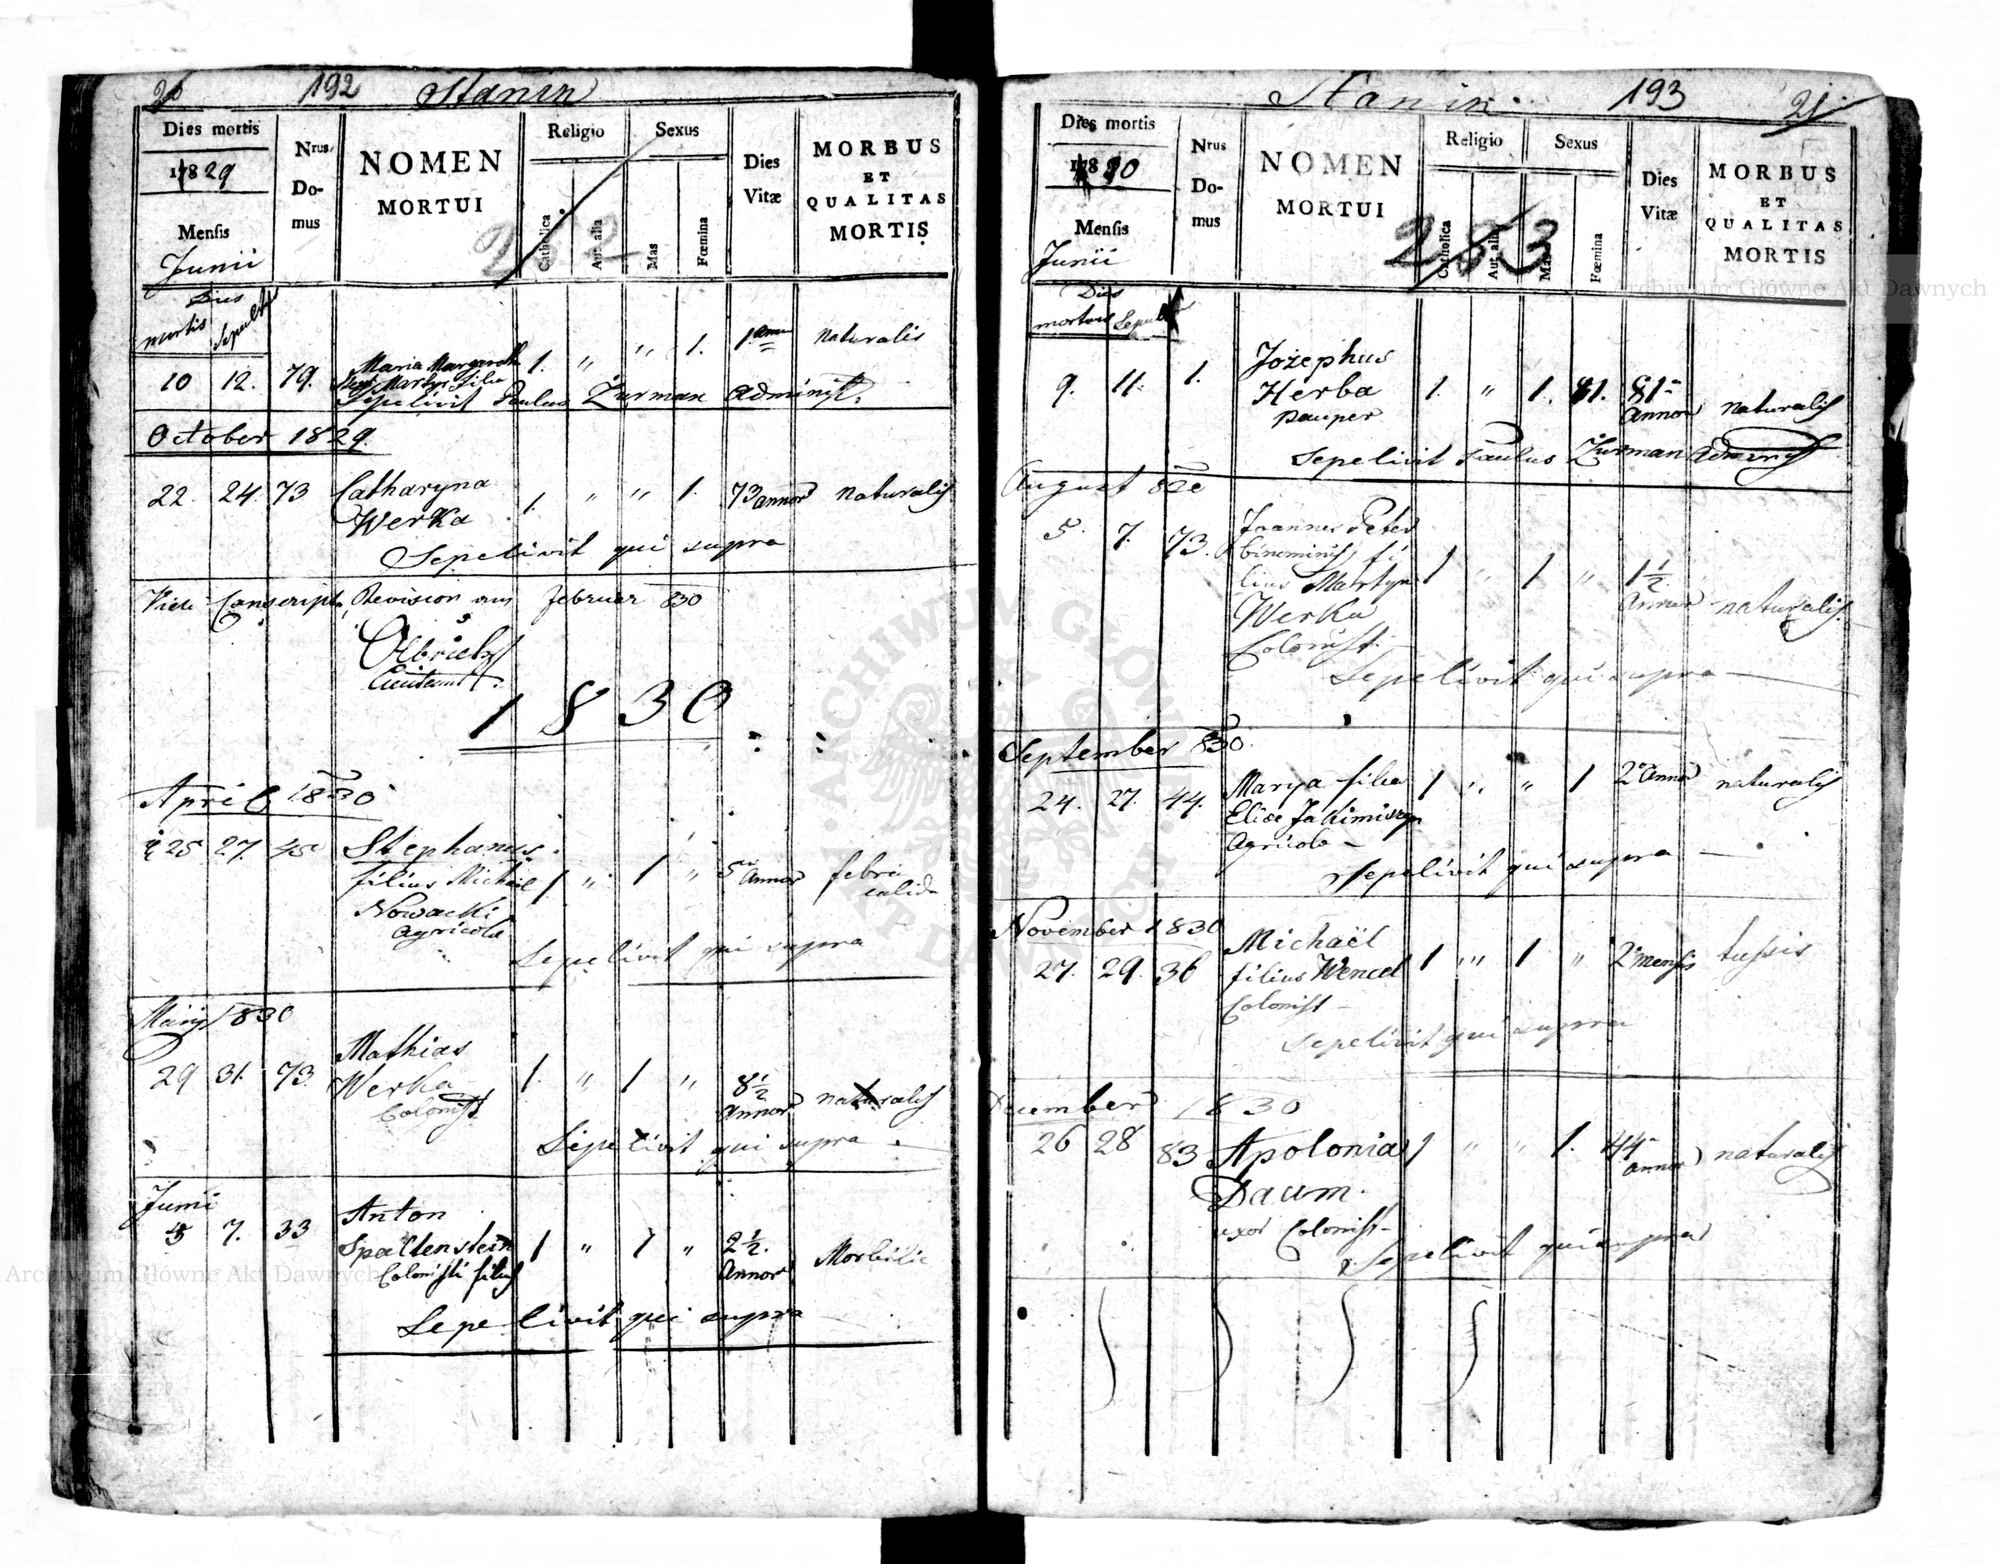 26 192 Stanin
Dies mortis
1829
Mensis
Junii
Dies
mortis Sepult
Nrus. Domus
NOMEN
MORTUI
Religio
Catholica
Aut alia
Sexus
Mas
Fœmina
Dies
Vitæ
MORBUS
ET
QUALITAS
MORTIS
282
10 12. 79. Maria Margareth 1. " " 1. 1. naturalis
Martyn filia
Sepelivit Paulus Zurman Administ.
October 1829.
22. 24. 73 Catharyna 1. " " 1. 73 annor naturalis
Werka
Sepelivit qui supra
Revision am Februar 830
Olbricht
Lieutenant
1830
April 1830
25 27. 45 Stephanus
filius Michael 1 " 1 " 5 Annor febri
calida
Nowacki
agricola
Sepelivit qui supra
Maij 1830
29 31. 73. Mathias
Werka 1. " 1 " 8½ Annor naturalis
Colonist
Sepelivit qui supra
Junii
5 7. 33 Anton
Spaltenstein 1 " 1 " 2½. Annor Morbili
Colonisti filius
Sepelivit qui supra
Stanin 193 21
Dies mortis
1830
Mensis
Junii
Dies
mortis Sepult
Nrus Domus
NOMEN
MORTUI
Religio
Catholica
Aut alia
Sexus
Mas
Fœmina
Dies
Vitæ
MORBUS
ET
QUALITAS
MORTIS
283
9. 11. 1. Jozephus
Herba 1. " 1. 81 Annor naturalis
pauper
Sepelivit Paulus Zurman Administ
August 830
5. 7. 73. Joannes Peter
binominis fi
lius Martyn 1 " 1 " 1½ Annor naturalis
Werka
Colonist.
Sepelivit qui supra
September 830.
24. 27. 44. Marya filia 1 " " 1 2 Annor naturalis
Eliae Jakimiszyn
Agricola
Sepelivit qui supra
November 1830
27. 29. 36 Michaël
filius Wencel 1 " 1 " 2 mensis tussis
Colonist
Sepelivit qui supra
December 1830
26 28 83 Apolonia 1 " " 1. 44 annor naturalis
Daum.
uxor Colonist
Sepelivit qui supra
ARCHIWUM GŁÓWNE AKT DAWNYCH
Archiwum Główne Akt Dawnych
Archiwum Główne Akt Dawnych